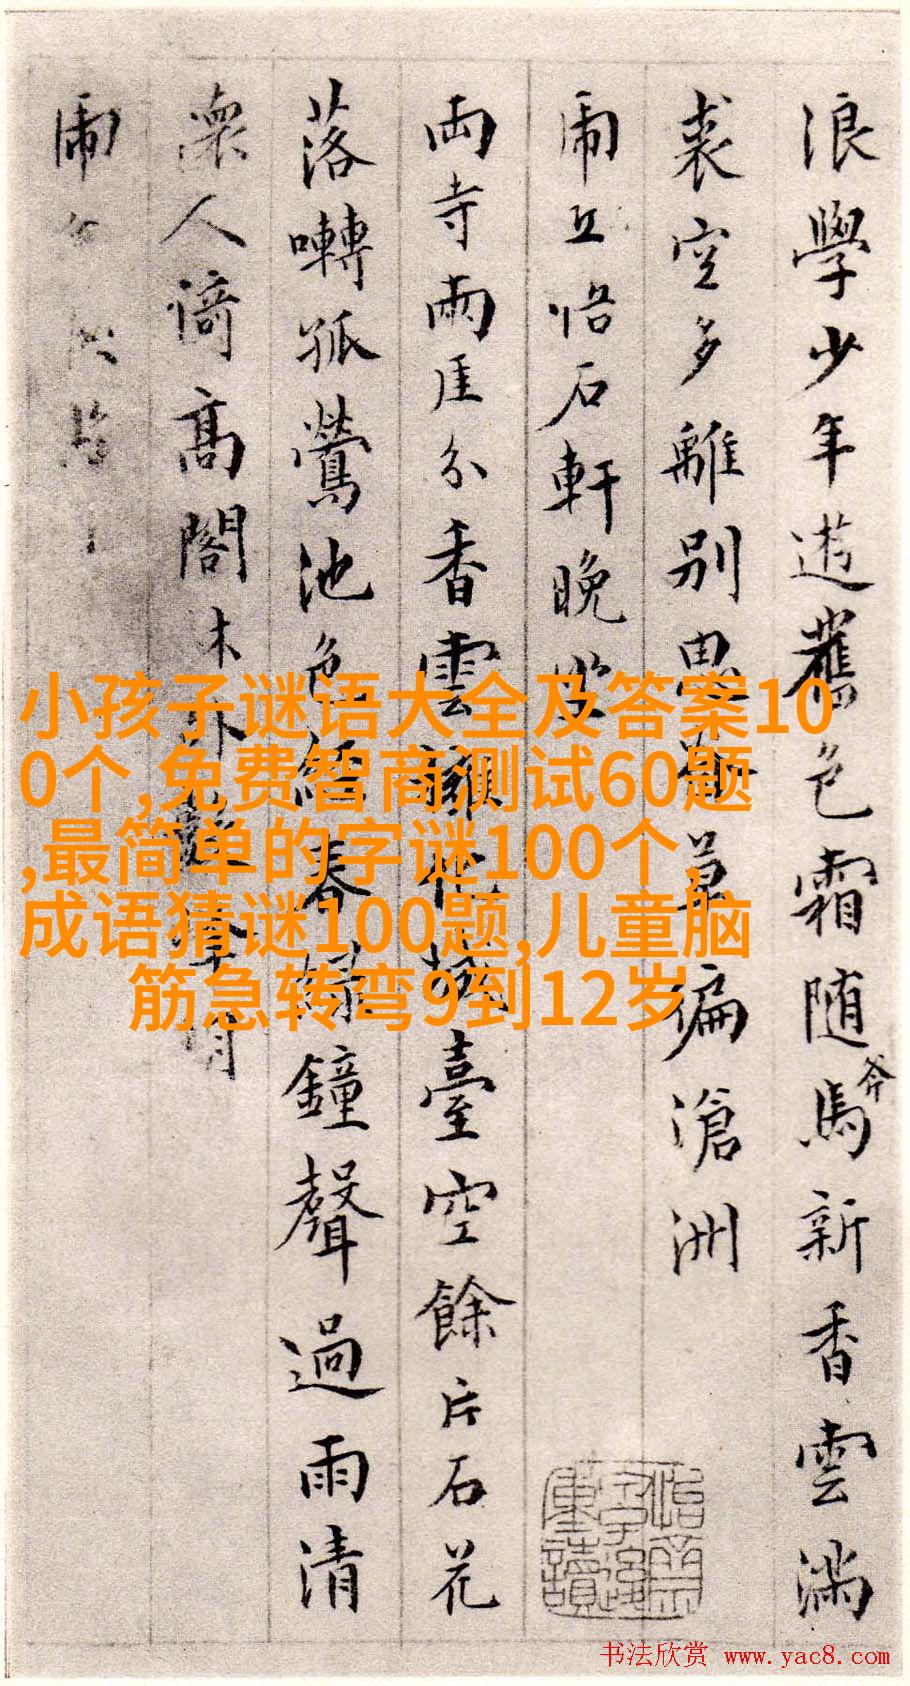 浪學少年遊舊色霜随馬新香雲滿
裘空多離別草徧滄洲
虎丘悟石軒晚
両寺兩厓分香雲擁臺空餘片石花
落囀孤鶯池色經春緑鐘聲過雨清
人倚高閣
虎
小孩子谜语大全及答案10
0个,免费智商测试60题
,最简单的字谜100个,
成语猜谜100题,儿童脑
筋急转弯9到12岁
书法欣赏 www.yac8.com